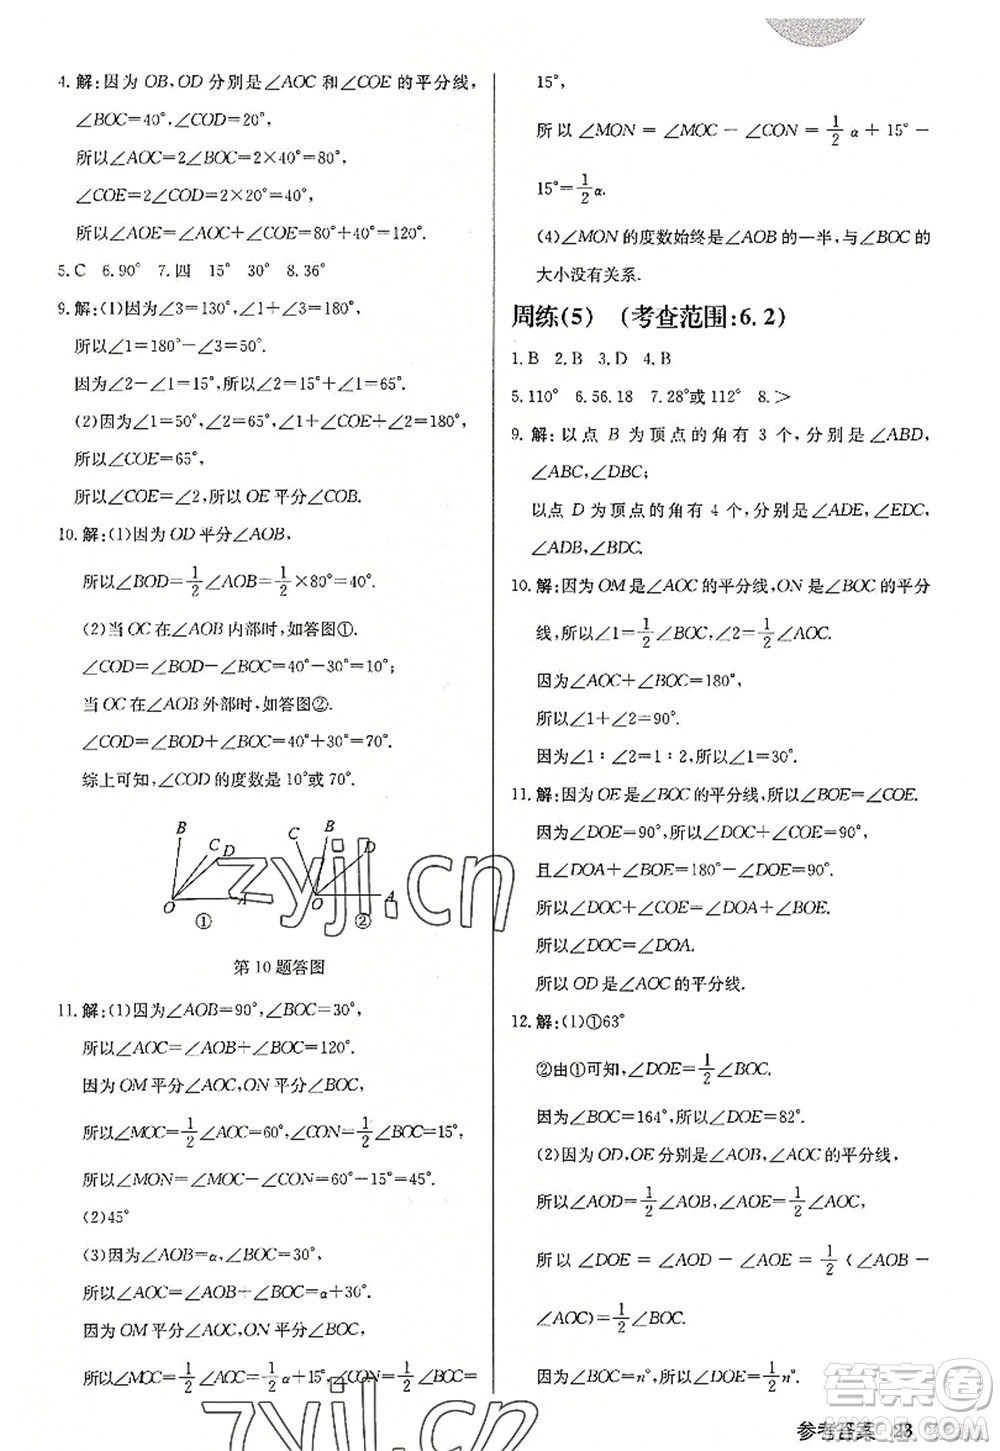 4. 解:因为 OB,OD 分别是∠AOC 和∠COE 的平分线,
∠BOC=40°,∠COD=20°,
所以∠AOC=2∠BOC=2×40°=80°,
∠COE=2∠COD=2×20°=40°,
所以∠AOE=∠AOC+∠COE=80°+40°=120°.
5. C 6. 90° 7. 四 15° 30° 8. 36°
9. 解:(1)因为∠3=130°,∠1+∠3=180°,
所以∠1=180°-∠3=50°.
因为∠2-∠1=15°,所以∠2=65°.
(2)因为∠1=50°,∠2=65°,∠1+∠COE+∠2=180°,
所以∠COE=65°.
所以∠COE=∠2,所以 OE 平分∠COB.
10. 解:(1)因为 OD 平分∠AOB,
所以∠BOD=1/2∠AOB=1/2×80°=40°.
(2)当 OC 在∠AOB 内部时,如答图①.
∠COD=∠BOD-∠BOC=40°-30°=10°;
当 OC 在∠AOB 外部时,如答图②.
∠COD=∠BOD+∠BOC=40°+30°=70°.
综上可知,∠COD 的度数是 10°或 70°.
B C D O A ①
C B D O A ②
第 10 题答图
11. 解:(1)因为∠AOB=90°,∠BOC=30°,
所以∠AOC=∠AOB+∠BOC=120°.
因为 OM 平分∠AOC,ON 平分∠BOC,
所以∠MOC=1/2∠AOC=60°,∠CON=1/2∠BOC=15°,
所以∠MON=∠MOC-∠CON=60°-15°=45°.
(2)45°
(3)因为∠AOB=α,∠BOC=30°,
所以∠AOC=∠AOB+∠BOC=α+30°.
因为 OM 平分∠AOC,ON 平分∠BOC,
所以∠MOC=1/2∠AOC=1/2α+15°,∠CON=1/2∠BOC=
15°,
所以∠MON=∠MOC-∠CON=1/2α+15°-
15°=1/2α.
(4)∠MON 的度数始终是∠AOB 的一半,与∠BOC 的
大小没有关系.
周练(5) (考查范围:6.2)
1. B 2. B 3. D 4. B
5. 110° 6. 56.18 7. 28°或 112° 8. >
9. 解:以点 B 为顶点的角有 3 个,分别是∠ABD,
∠ABC,∠DBC;
以点 D 为顶点的角有 4 个,分别是∠ADE,∠EDC,
∠ADB,∠BDC.
10. 解:因为 OM 是∠AOC 的平分线,ON 是∠BOC 的平分
线,所以∠1=1/2∠BOC,∠2=1/2∠AOC.
因为∠AOC+∠BOC=180°,
所以∠1+∠2=90°.
因为∠1:∠2=1:2,所以∠1=30°.
11. 解:因为 OE 是∠BOC 的平分线,所以∠BOE=∠COE.
因为∠DOE=90°,所以∠DOC+∠COE=90°,
且∠DOA+∠BOE=180°-∠DOE=90°.
所以∠DOC+∠COE=∠DOA+∠BOE.
所以∠DOC=∠DOA.
所以 OD 是∠AOC 的平分线.
12. 解:(1)①63°
②由①可知,∠DOE=1/2∠BOC.
因为∠BOC=164°,所以∠DOE=82°.
(2)因为 OD,OE 分别是∠AOB,∠AOC 的平分线,
所以∠AOD=1/2∠AOB,∠AOE=1/2∠AOC,
所以∠DOE=∠AOD-∠AOE=1/2(∠AOB-
∠AOC)=1/2∠BOC.
因为∠BOC=n°,所以∠DOE=1/2∠BOC=1/2n°.
zyjl.cn
zyjl.cn
答案圈
参考答案 23